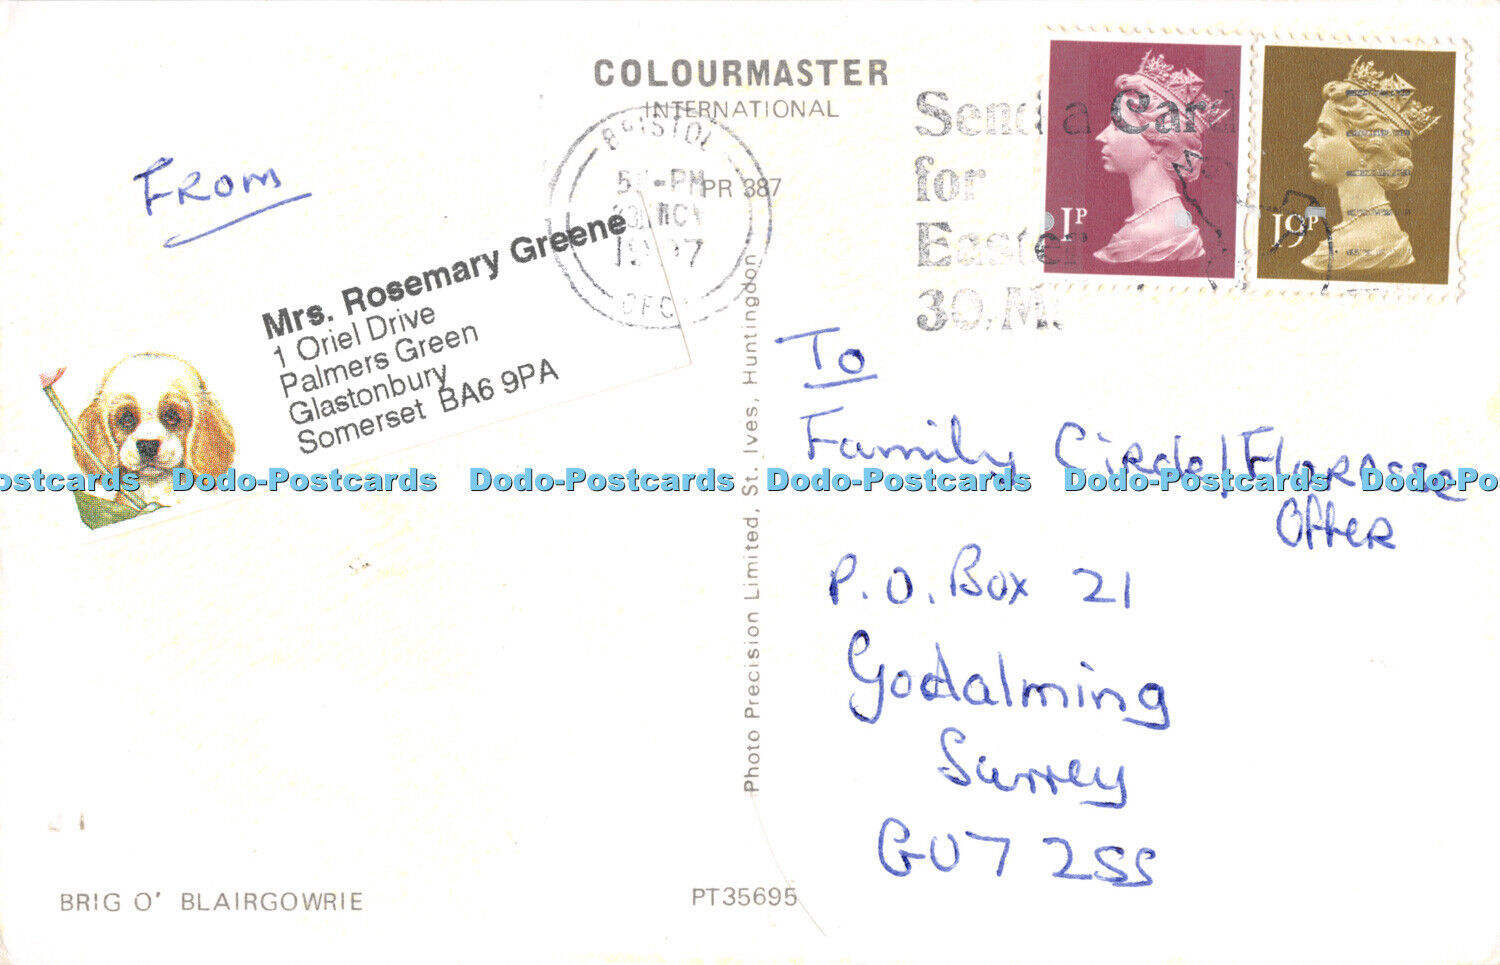 COLOURMASTER
INTERNATIONAL
BRISTOL
PM
PR 387
Send a Card
for
Easter
30.M
1P
19P
FROM
Mrs. Rosemary Greene
1 Oriel Drive
Palmers Green
Glastonbury
Somerset BA6 9PA
To
Family Circle/Florasee
Offer
P.O. Box 21
Godalming
Surrey
GU7 2SS
Dodo-Postcards Dodo-Postcards Dodo-Postcards Dodo-Postcards Dodo-Postcards Dodo-Po
Photo Precision Limited, St. Ives, Huntingdon
BRIG O' BLAIRGOWRIE
PT35695